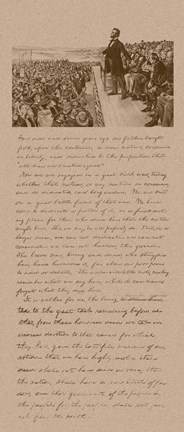 Four score and seven years ago our fathers brought
forth, upon this continent, a new nation, conceived
in liberty, and dedicated to the proposition that
all men are created equal
Now we are engaged in a great civil war, testing
whether that nation, or any nation so conceived,
and so dedicated, can long endure. We are met
on a great battle field of that war. We have
come to dedicate a portion of it, as a
place for those who
This we may, in all propriety do. But, in a
larger sense, we can not dedicate we can not
consecrate we can not hallow, this ground
The brave men, living and dead, who struggled
here, have hallowed it, far above our poor power
to add or detract. The world will little note, nor long
remember what we say here, while it can never
forget what they did here.
It is rather for us, the living,
to the great task remaining before us
that, from these honored dead we take in-
creased devotion to that cause for which
they here, gave the last full measure of
devotion that we here highly resolve these
dead shall not have died in vain, that
the nation, shall have a new birth of free-
dom, and that government of the people, by
the people, for the people, shall not per-
ish from the earth.